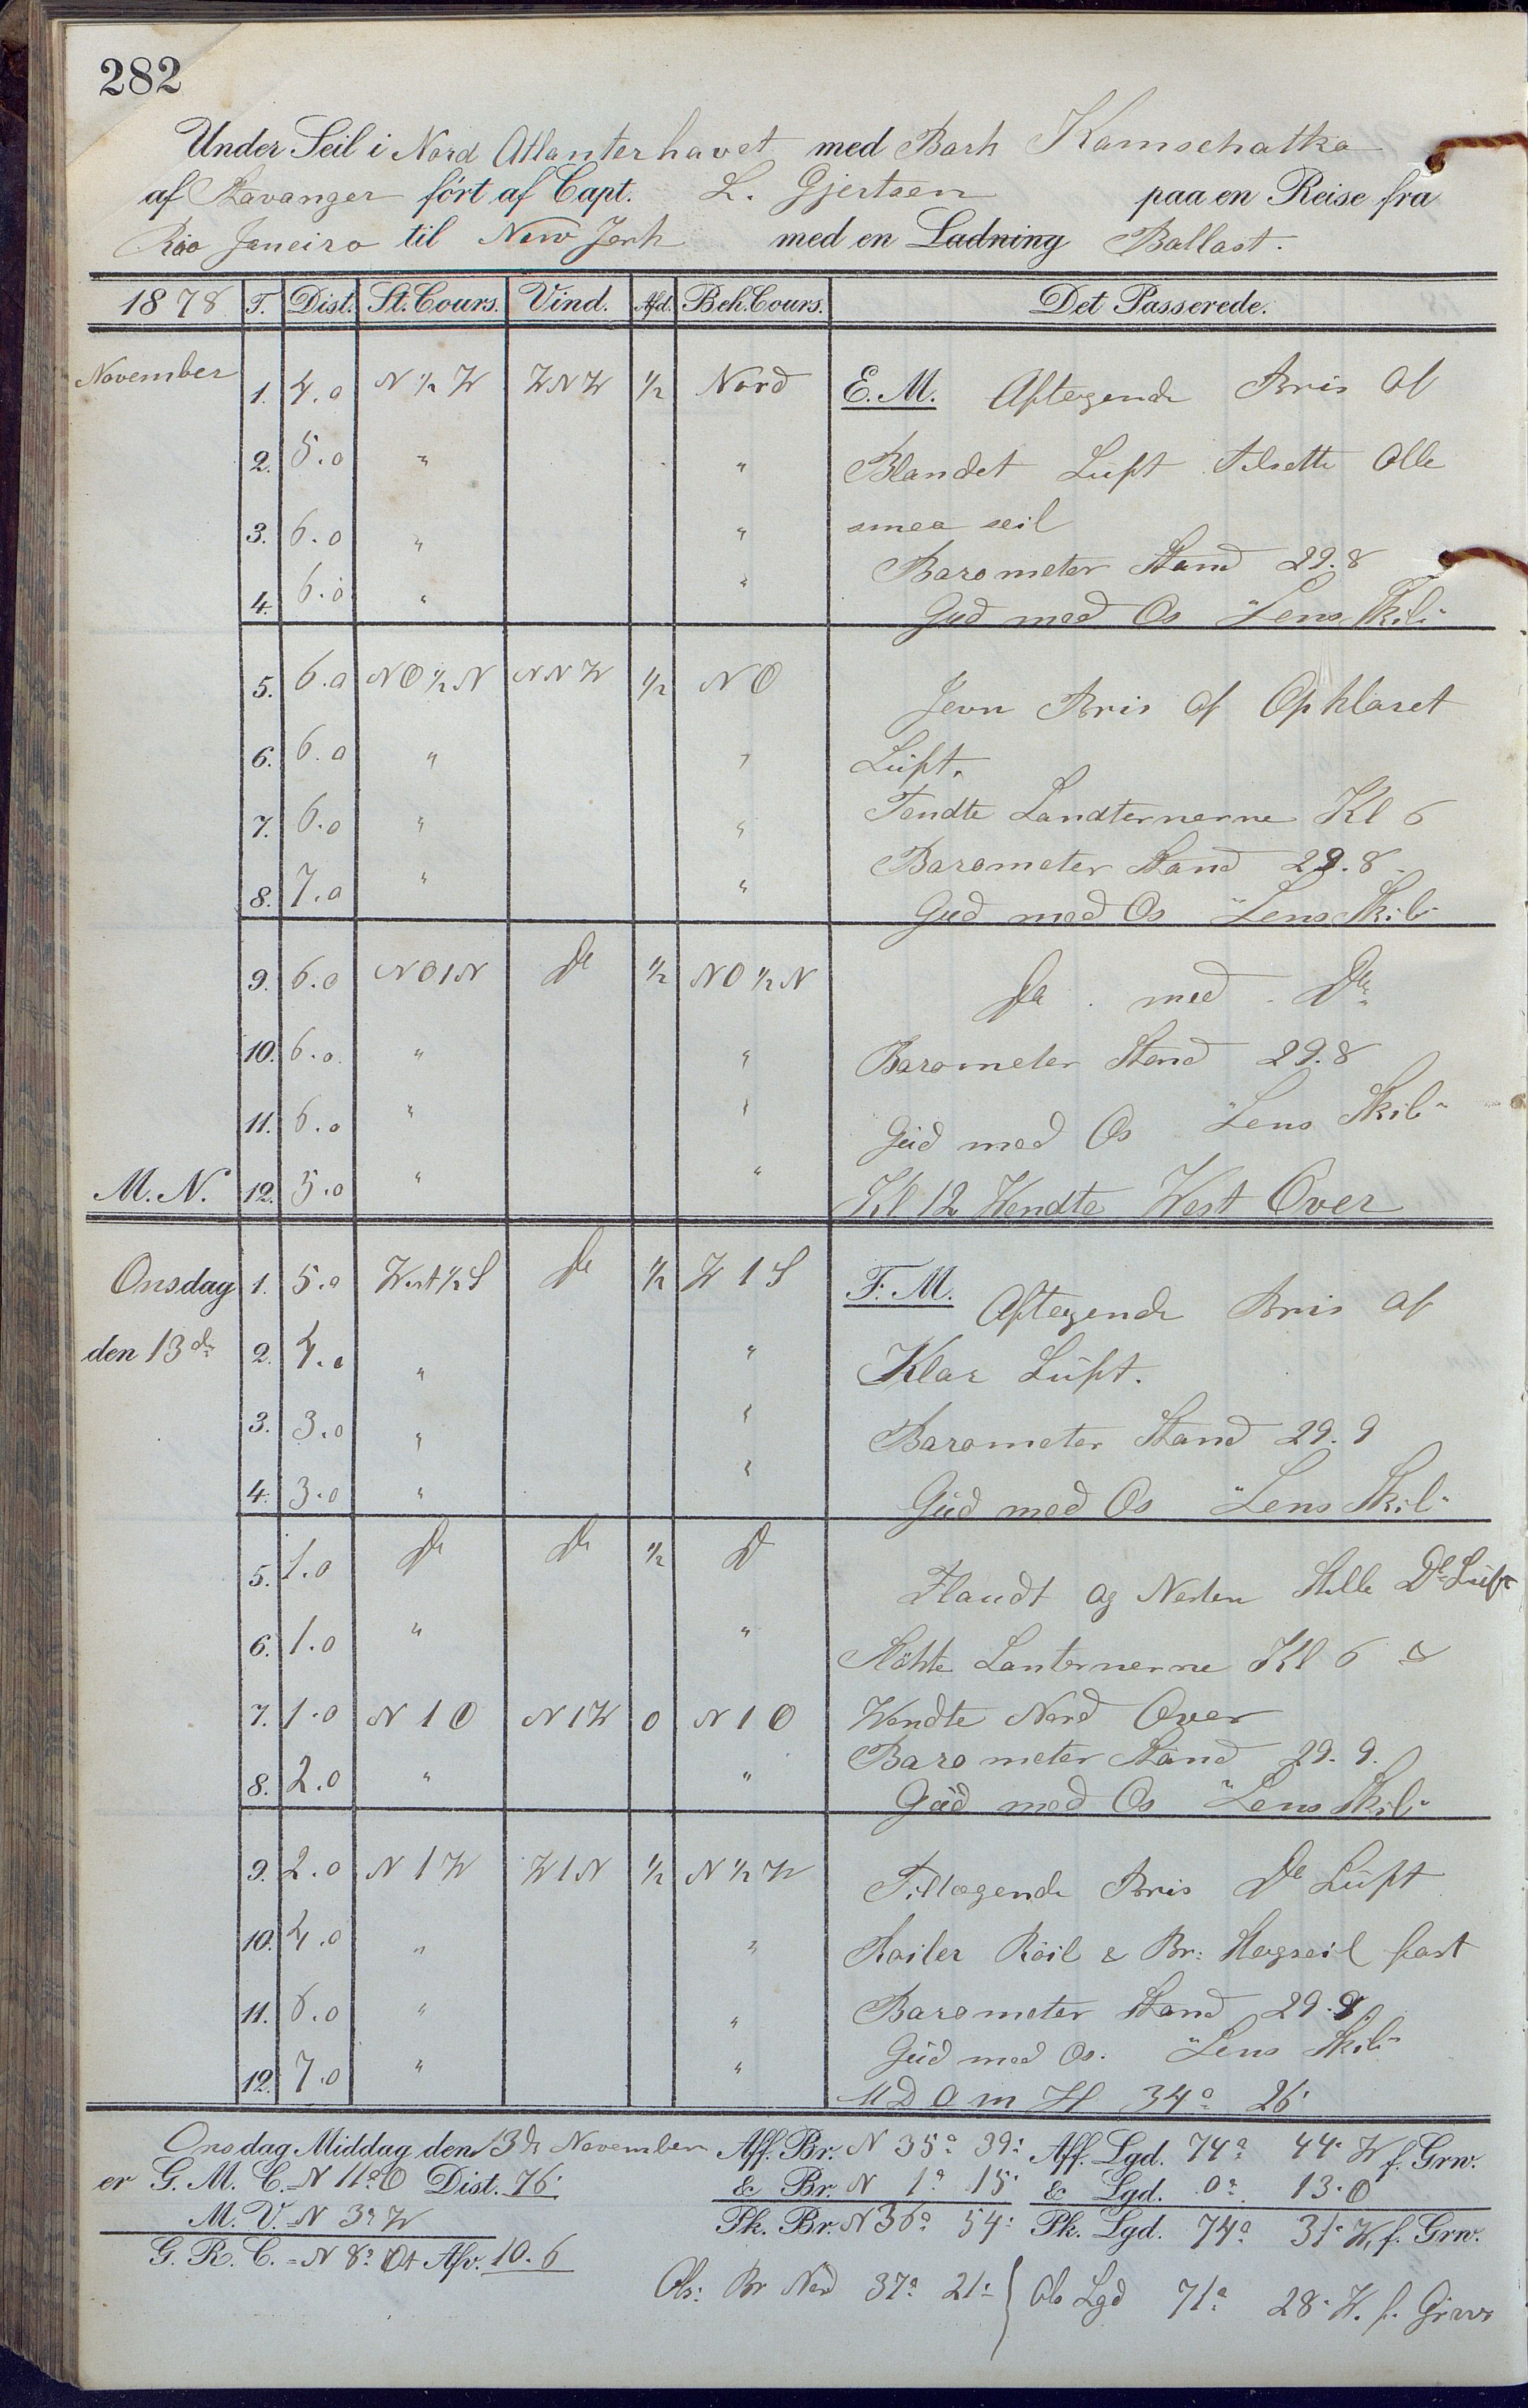 282
Under Seil i Nord Atlanterhavet med Bark Kamschatka
af Stavanger ført af Capt. L. Gjertsen paa en Reise fra
Rio Janeiro til New York med en Ladning Ballast.
1878 T. Dist. St. Cours. Vind. Afd. Beh. Cours. Det Passerede.
November 1. 4.0 N ½ W WNW ½ Nord E.M. Aftagende Bris af
2. 5.0 " " Blandet Luft tilsatte Alle
3. 6.0 " " smaa seil
Barometer Stand 29.8
4. 6.0 " " Gud med Os "Lens Skib"
5. 6.0 NO ½ N NNW ½ NO Jevn Bris af Opklaret
6. 6.0 " " Luft.
7. 6.0 " " Tendte Landternerne Kl 6
Barometer Stand 29.8
8. 7.0 " " Gud med Os "Lens Skib"
9. 6.0 NO1N Do ½ NO ½ N Do med Do
10. 6.0 " " Barometer Stand 29.8
11. 6.0 " " Gud med Os "Lens Skib"
M. N. 12. 5.0 " " Kl 12 Wendte West Over
Onsdag 1. 5.0 West ½ S Do ½ W 1 S F.M. Aftagende Bris af
den 13de 2. 4.0 " " Klar Luft.
3. 3.0 " " Barometer Stand 29.9
4. 3.0 " " Gud med Os "Lens Skib"
5. 1.0 Do Do ½ Do Flaudt og Nesten Stille Do Luft
6. 1.0 " " Slökte Lanternerne Kl 6 &
7. 1.0 N 1 O N1W 0 N 1 O Wendte Nord Over
Barometer Stand 29.9.
8. 2.0 " " Gud med Os "Lens Skib"
9. 2.0 N 1 W W1N ½ N ½ W Tiltagende Bris Do Luft
10. 4.0 " " Röil & Br: Stagseil fast
11. 6.0 " " Barometer Stand 29.9
Gud med Os. "Lens Skib"
12. 7.0 " " M D O m H 34° 26'
Onsdag Middag den 13de November Aff. Br. N 35° 39' Aff. Lgd. 74° 44' W f. Grw.
er G. M. C. = N 11° O Dist. 76' & Br. N 1° 15' & Lgd. 0° 13' O
M. V. = N 3° W Pk. Br. N 36° 54' Pk. Lgd. 74° 31' W, f. Grw.
G. R. C. = N 8° Ot Afv. 10.6
Obs: Br Nord 37° 21' Obs Lgd 71° 28' W. f. Grw